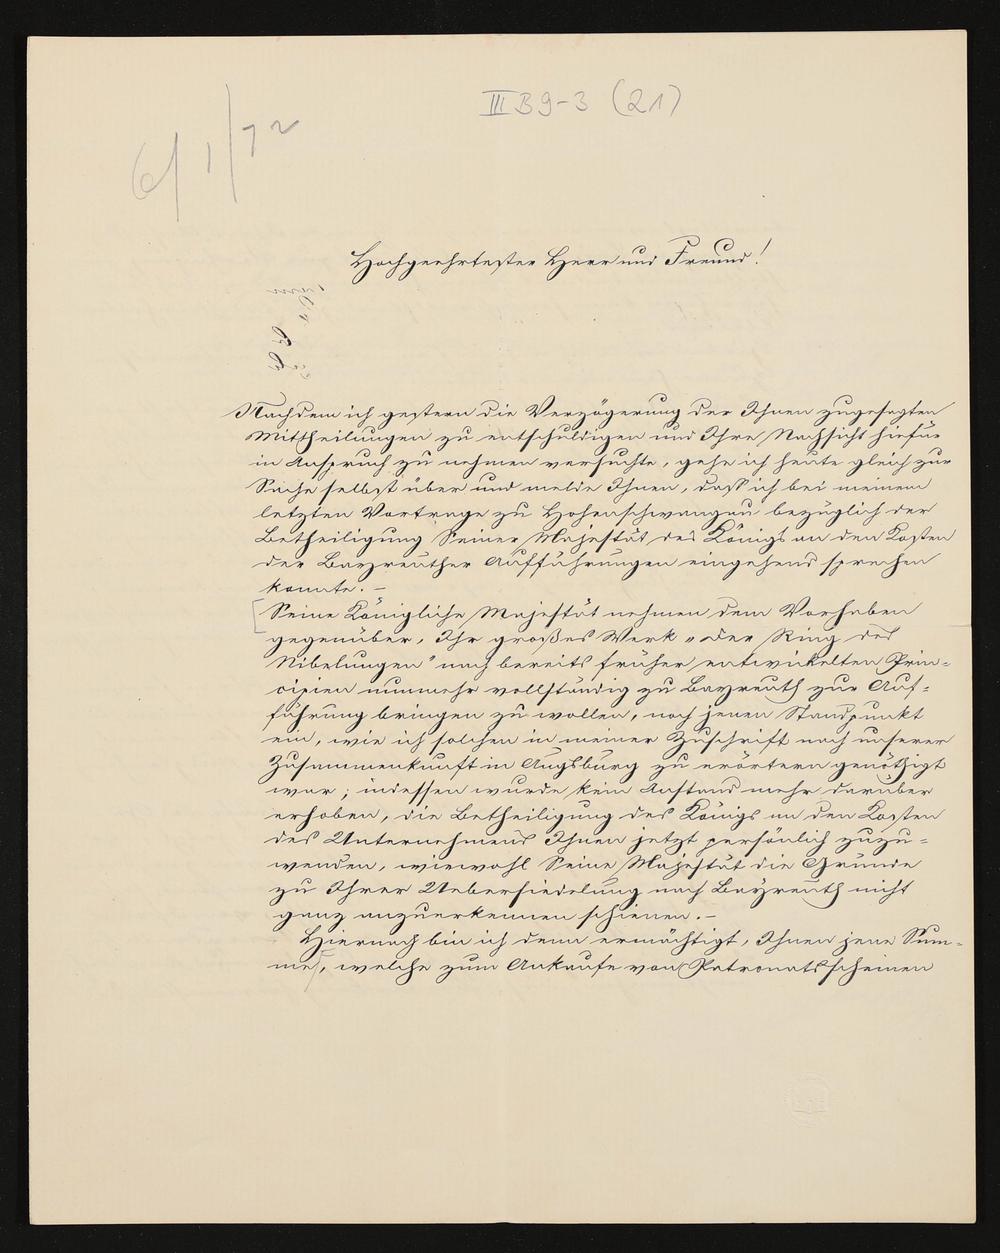 III B 9-3 (21)
6/1/72
Hochgeehrtester Herr und Freund!
Nachdem ich gestern die Verzögerung der Ihnen zugesagten
Mittheilungen zu entschuldigen und Ihre Nachsicht hiefür
in Anspruch zu nehmen versuchte, gehe ich heute gleich zur
Sache selbst über und melde Ihnen, daß ich bei meinem
letzten Vortrage zu Hohenschwangau bezüglich der
Betheiligung Seiner Majestät des Königs an den Kosten
der Bayreuther Aufführungen eingehend sprechen
konnte. –
Seine Königliche Majestät nehmen dem Vorhaben
gegenüber, Ihr großes Werk „der Ring des
Nibelungen" nach bereits früher entwickelten Prin-
cipien nunmehr vollständig zu Bayreuth zur Auf-
führung bringen zu wollen, noch jenen Standpunkt
ein, wie ich solchen in meiner Zuschrift nach unserer
Zusammenkunft in Augsburg zu erörtern genöthigt
war; indessen wurde kein Anstand mehr darüber
erhoben, die Betheiligung des Königs an den Kosten
des Unternehmens Ihnen jetzt persönlich zuzu-
wenden, wiewohl Seine Majestät die Gründe
zu Ihrer Uebersiedelung nach Bayreuth nicht
ganz anzuerkennen schienen. –
Hiernach bin ich denn ermächtigt, Ihnen jene Sum-
me, welche zum Ankaufe von Patronatsscheinen